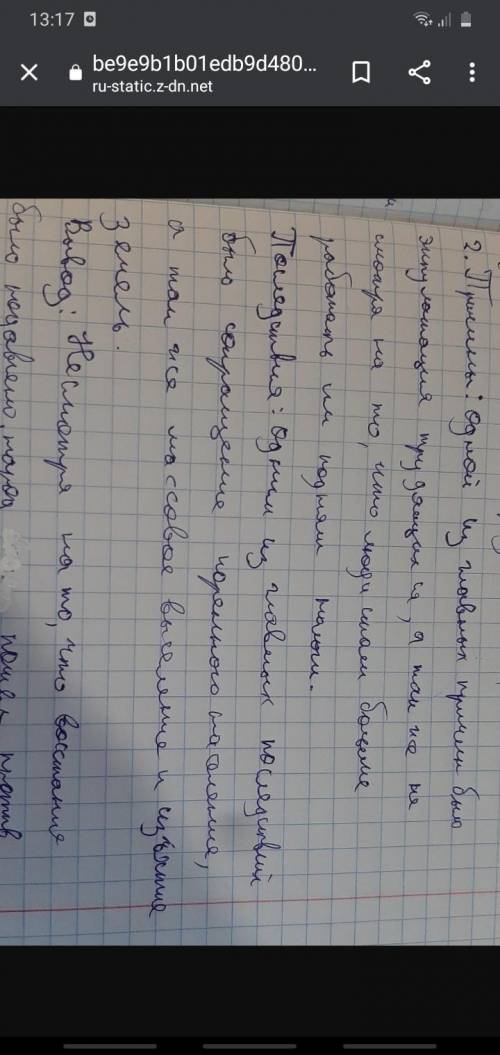 13:17
be9e9b1b01edb9d480...
ru-static.z-dn.net
2. Причины: Одной из главных причин было
эксплуатация трудящихся, а так же не
смотря на то, что люди стали больше
работать им подняли налог.
Последствия: Одним из главных последствий
было сокращение коренного населения,
а так же массовое выселение и изъятие
земель.
Вывод: Несмотря на то, что восстание
было подавлено, народ пошел против